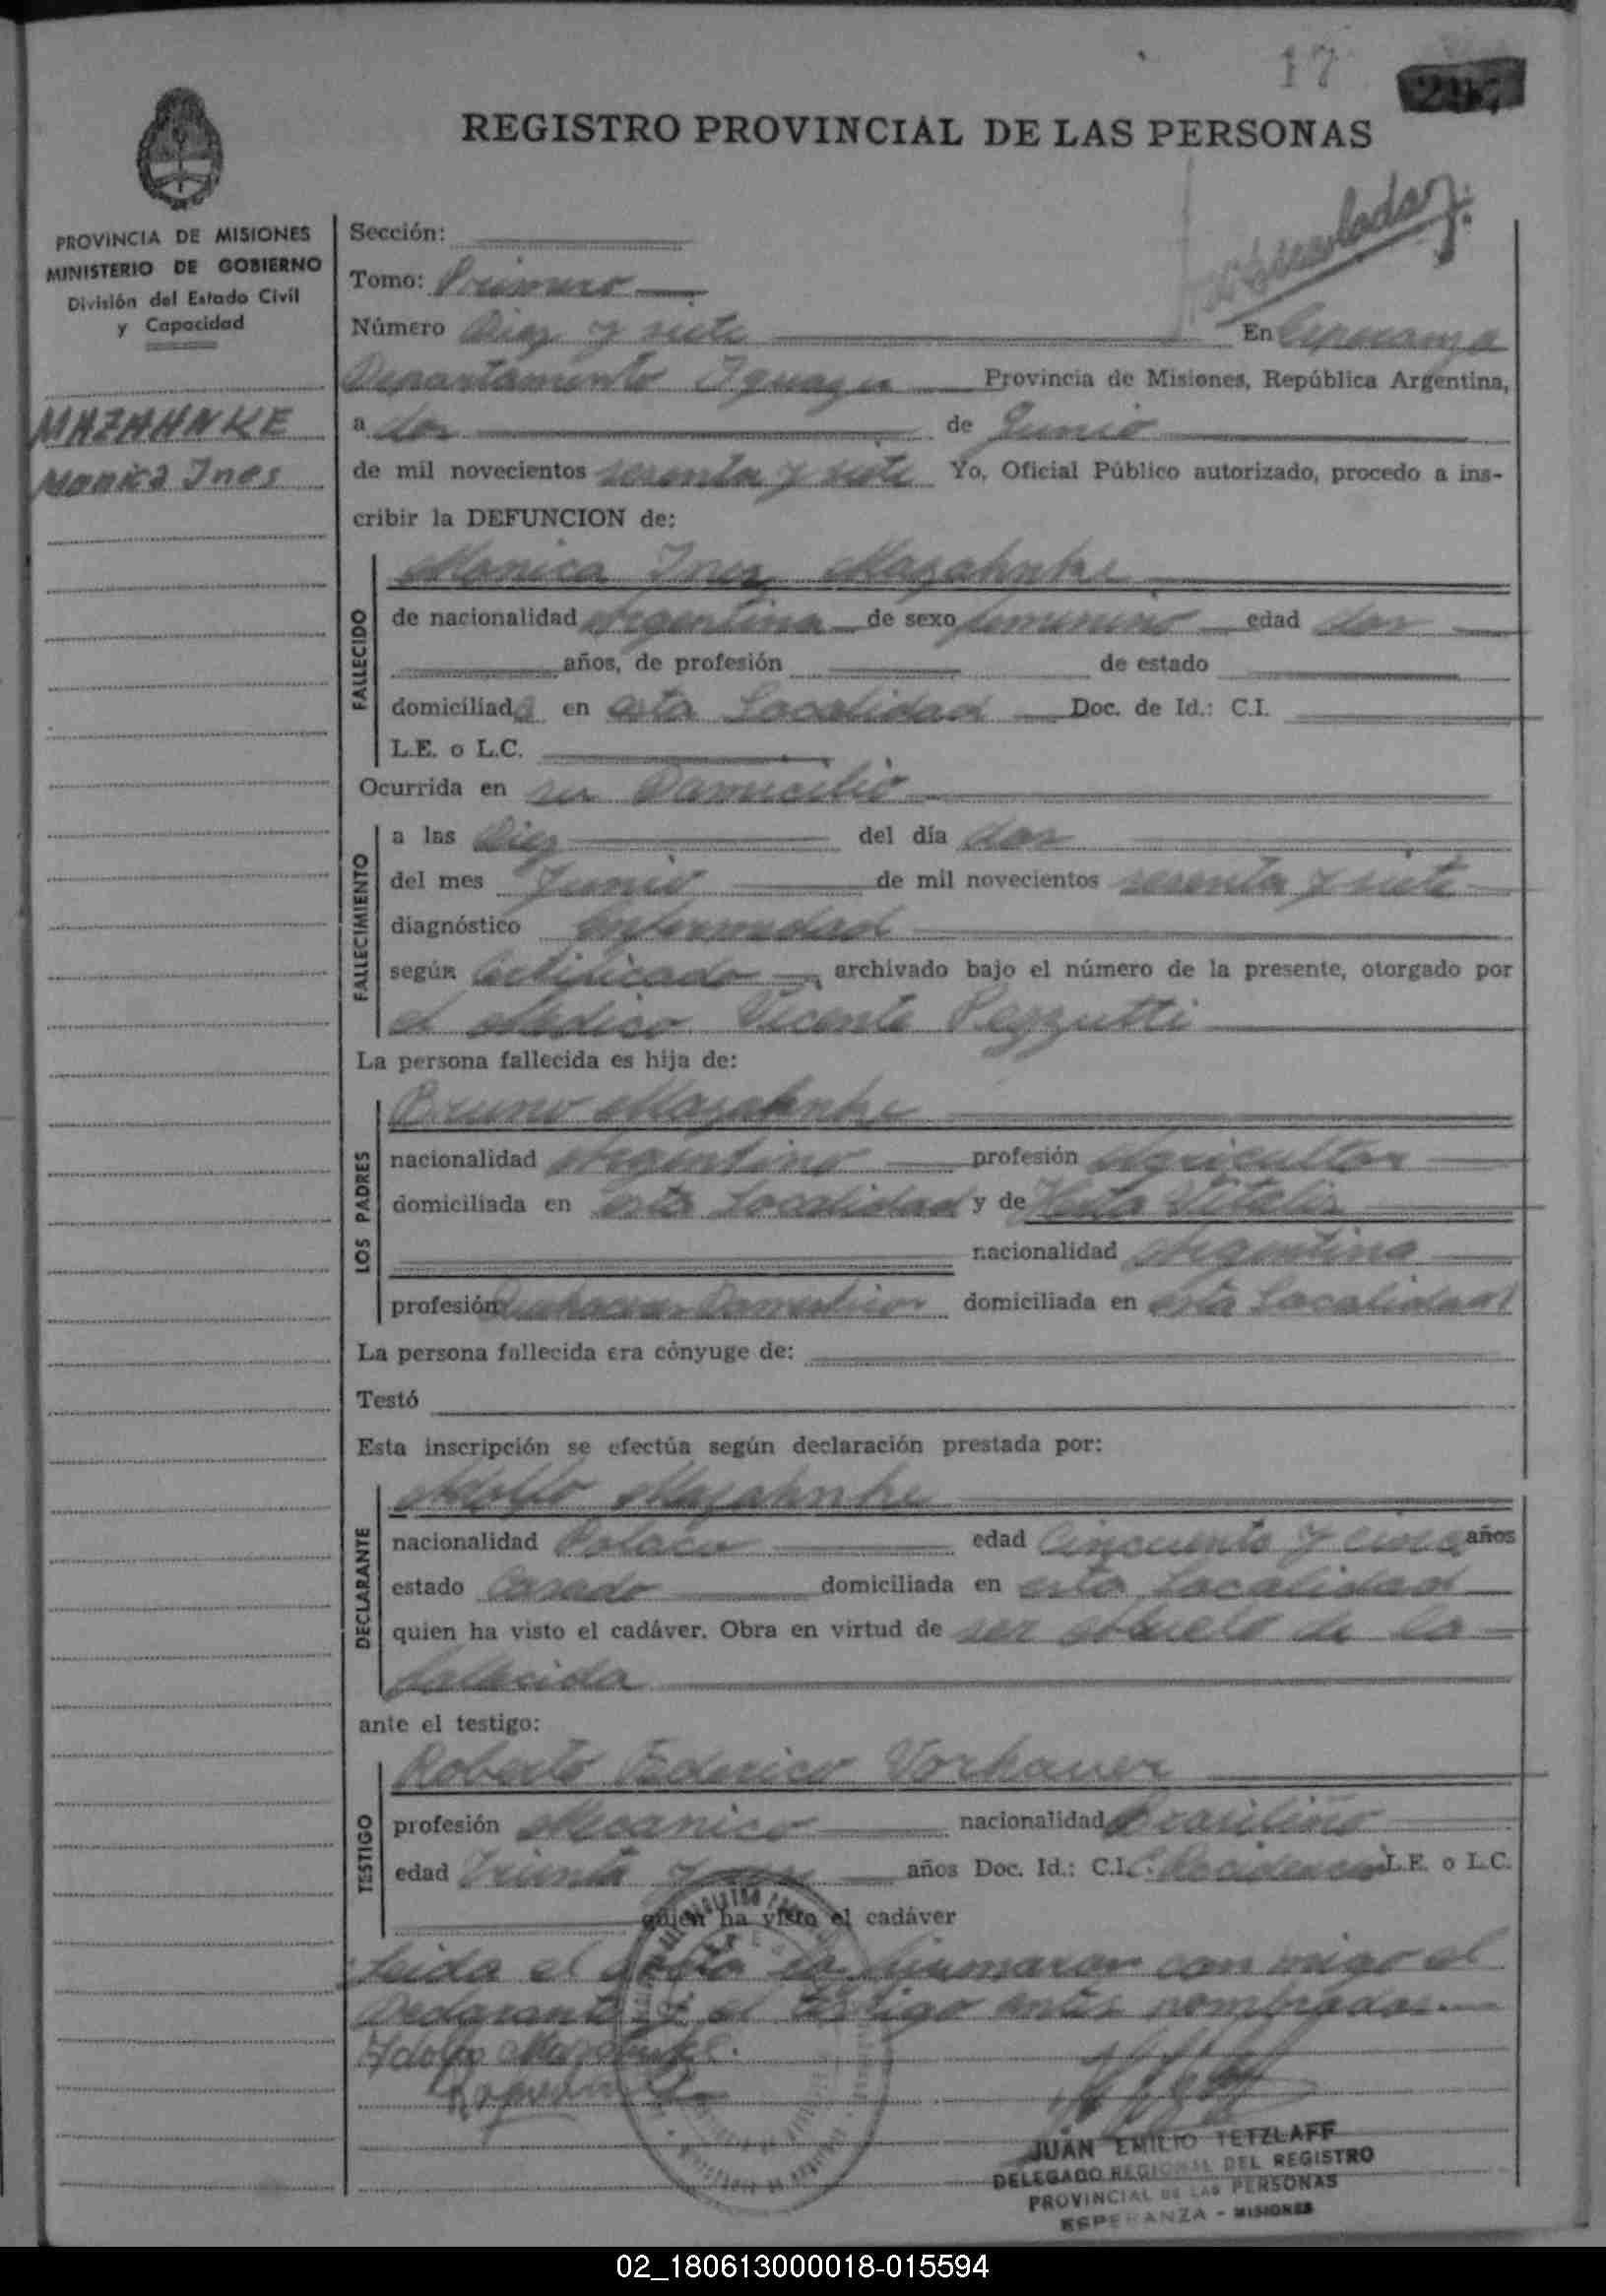 17
REGISTRO PROVINCIAL DE LAS PERSONAS
PROVINCIA DE MISIONES
MINISTERIO DE GOBIERNO
División del Estado Civil
y Capacidad
MAZAHNKE
Monica Ines
Sección:
Tomo: Primero
Número Diez y siete En Esperanza
Departamento Iguazu Provincia de Misiones, República Argentina,
a dos de Junio
de mil novecientos sesenta y siete Yo, Oficial Público autorizado, procedo a ins-
cribir la DEFUNCION de:
FALLECIDO
Monica Ines Mazahnke
de nacionalidad Argentina de sexo femenino edad dos
años, de profesión de estado
domiciliada en esta Localidad Doc. de Id.: C.I.
L.E. o L.C.
Ocurrida en su Domicilio
FALLECIMIENTO
a las Diez del día dos
del mes Junio de mil novecientos sesenta y siete
diagnóstico enfermedad
según Certificado archivado bajo el número de la presente, otorgado por
el Medico Vicente Pezzutti
La persona fallecida es hija de:
LOS PADRES
Bruno Mazahnke
nacionalidad Argentino profesión Agricultor
domiciliada en esta Localidad y de Herta Vitalis
nacionalidad Argentina
profesión Quehaceres Domesticos domiciliada en esta Localidad
La persona fallecida era cónyuge de:
Testó
Esta inscripción se efectúa según declaración prestada por:
DECLARANTE
Adolfo Mazahnke
nacionalidad Polaco edad Cincuenta y años
estado Casado domiciliada en esta Localidad
quien ha visto el cadáver. Obra en virtud de ser Abuelo de la
fallecida
ante el testigo:
TESTIGO
Roberto Federico Vorhauer
profesión Mecanico nacionalidad Brasileño
edad Trienta y años Doc. Id.: C.I. Recidencia L.E. o L.C.
quien ha visto el cadáver
Leida el acta la firmaron con migo el
Declarante y el testigo antes nombrados.
Adolfo Mazahnke.
JUAN EMILIO TETZLAFF
DELEGADO REGIONAL DEL REGISTRO
PROVINCIAL DE LAS PERSONAS
ESPERANZA - MISIONES
02_180613000018-015594